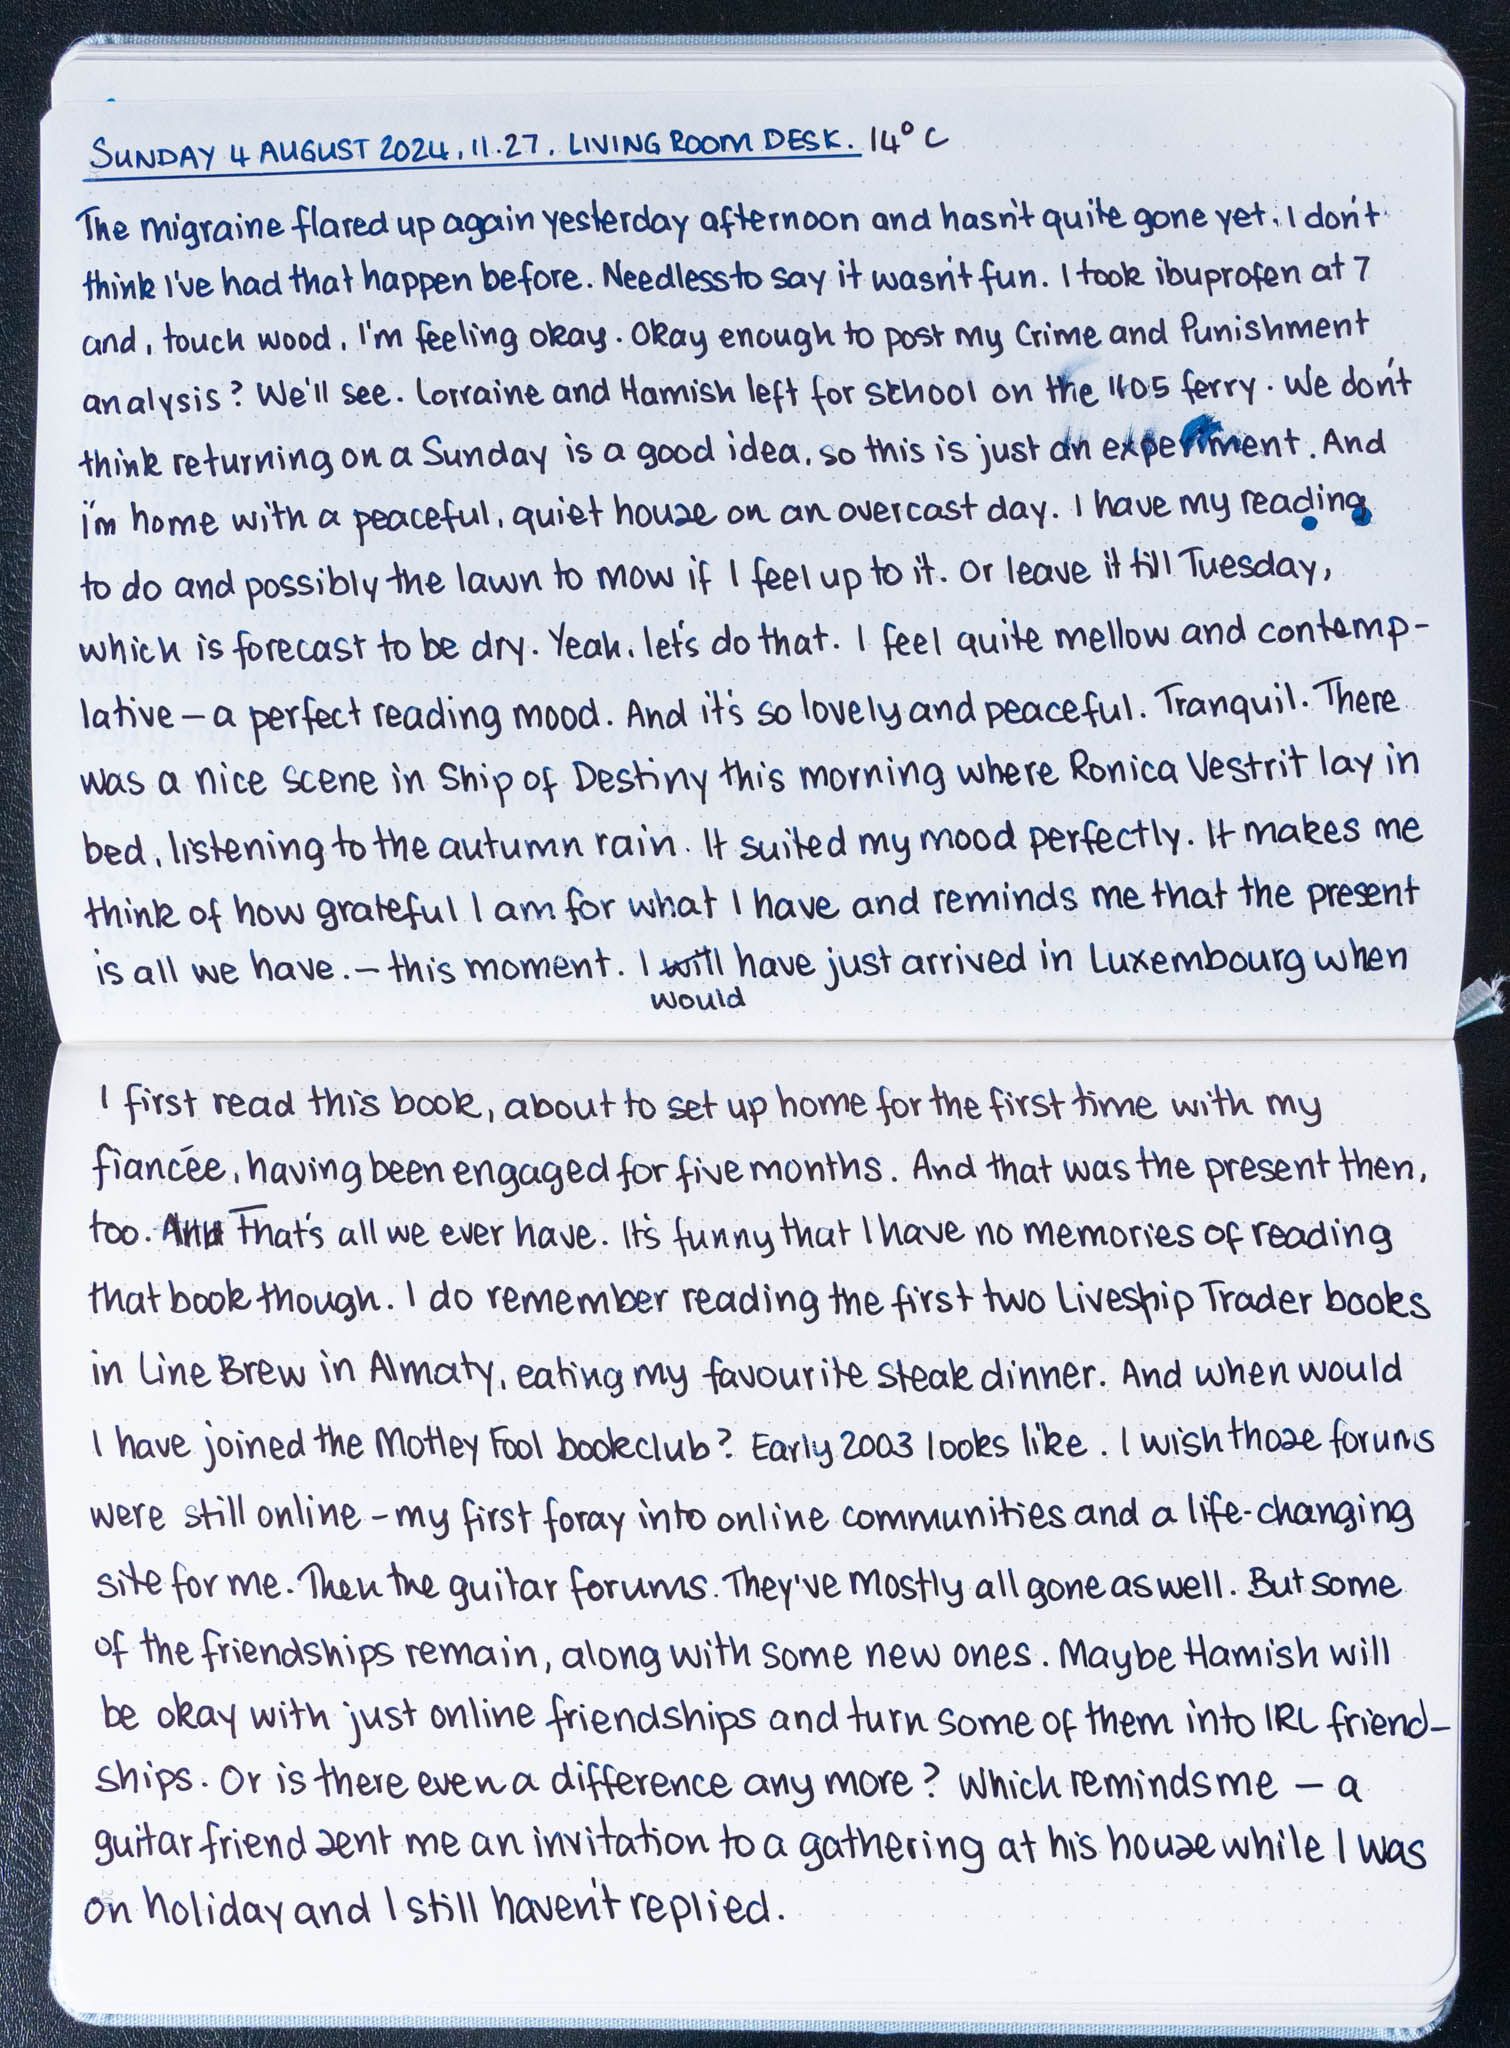 SUNDAY 4 AUGUST 2024, 11.27. LIVING ROOM DESK. 14°C
The migraine flared up again yesterday afternoon and hasn't quite gone yet. I don't
think I've had that happen before. Needless to say it wasn't fun. I took ibuprofen at 7
and, touch wood, I'm feeling okay. Okay enough to post my Crime and Punishment
analysis? We'll see. Lorraine and Hamish left for school on the 1105 ferry. We don't
think returning on a Sunday is a good idea, so this is just an experiment. And
I'm home with a peaceful, quiet house on an overcast day. I have my reading
to do and possibly the lawn to mow if I feel up to it. Or leave it till Tuesday,
which is forecast to be dry. Yeah, let's do that. I feel quite mellow and contemp-
lative – a perfect reading mood. And it's so lovely and peaceful. Tranquil. There
was a nice scene in Ship of Destiny this morning where Ronica Vestrit lay in
bed, listening to the autumn rain. It suited my mood perfectly. It makes me
think of how grateful I am for what I have and reminds me that the present
is all we have. – this moment. I will have just arrived in Luxembourg when
would
I first read this book, about to set up home for the first time with my
fiancée, having been engaged for five months. And that was the present then,
too. And That's all we ever have. It's funny that I have no memories of reading
that book though. I do remember reading the first two Liveship Trader books
in Line Brew in Almaty, eating my favourite steak dinner. And when would
I have joined the Motley Fool bookclub? Early 2003 looks like. I wish those forums
were still online – my first foray into online communities and a life-changing
site for me. Then the guitar forums. They've mostly all gone as well. But some
of the friendships remain, along with some new ones. Maybe Hamish will
be okay with just online friendships and turn some of them into IRL friend-
ships. Or is there even a difference any more? Which reminds me – a
guitar friend sent me an invitation to a gathering at his house while I was
on holiday and I still haven't replied.